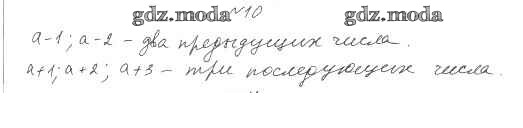 gdz.moda №10 gdz.moda
a-1; a-2 – два предыдущих числа.
a+1; a+2; a+3 – три последующих числа.